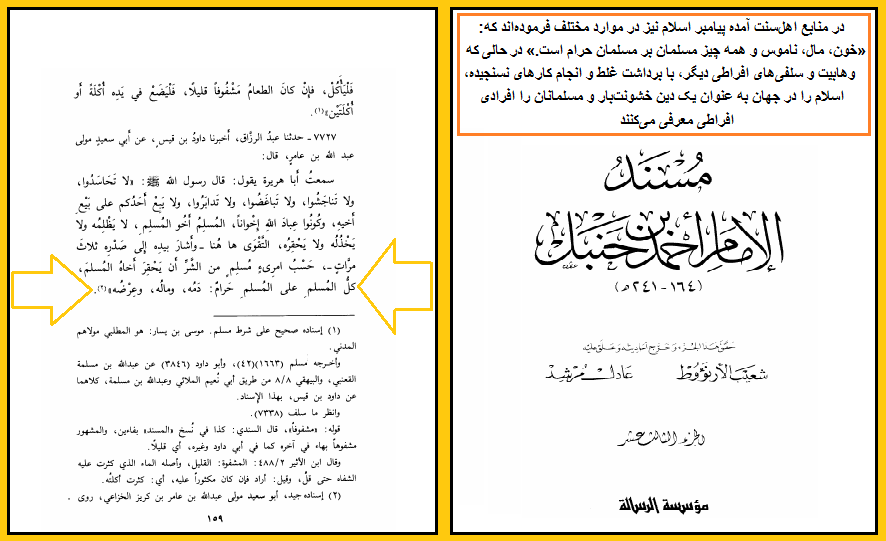 در منابع اهل‌سنت آمده پیامبر اسلام نیز در موارد مختلف فرموده‌اند که:
«خون، مال، ناموس و همه چیز مسلمان بر مسلمان حرام است.» در حالی که
وهابیت و سلفی‌های افراطی دیگر، با برداشت غلط و انجام کارهای نسنجیده،
اسلام را در جهان به عنوان یک دین خشونت‌بار و مسلمانان را افرادی
افراطی معرفی می‌کنند
مُسْنَدُ
الإمَامِ أَحْمَدَ بْنِ حَنْبَلٍ
(١٦٤ - ٢٤١ هـ)
حقق هذا الجزء وخرج أحاديثه وعلق عليه
شعيب الأرنؤوط عادل مرشد
الجزء الثالث عشر
مؤسسة الرسالة
فَلْيَأْكُلْ، فإنْ كانَ الطعامُ مَشْفُوفاً قليلًا، فَلْيَضَعْ في يَدِه أُكْلَةً أو
أُكْلَتَيْن»(١).
٧٧٢٧ ـ حدثنا عبدُ الرزَّاق، أخبرنا داودُ بن قيس، عن أبي سعيدٍ مولى
عبد الله بن عامرٍ، قال:
سمعتُ أبا هريرة يقول: قال رسول الله ﷺ: «لا تَحَاسَدُوا،
ولا تَنَاجَشُوا، ولا تَبَاغَضُوا، ولا تَدابَرُوا، ولا يَبِعْ أَحَدُكم على بَيْعِ
أخيهِ، وكُونُوا عِبادَ اللهِ إخْواناً، المُسلِمُ أَخُو المُسلِمِ، لا يَظْلِمُه ولا
يَخْذُلُه ولا يَحْقِرُه، التَّقْوَى ها هُنا ـ وأشارَ بيدِه إلى صَدْرِه ثلاثَ
مرَّاتٍ ـ، حَسْبُ امرِىءٍ مُسلِمٍ من الشَّرِّ أن يَحْقِرَ أخاهُ المُسلمَ،
كلُّ المُسلمِ على المُسلمِ حَرامٌ: دَمُه، ومالُه، وعِرْضُه»(٢).
(١) إسناده صحيح على شرط مسلم. موسى بن يسار: هو المطلبي مولاهم
المدني.
وأخرجه مسلم (١٦٦٣)(٤٢)، وأبو داود (٣٨٤٦) عن عبدالله بن مسلمة
القعنبي، والبيهقي ٨/٨ من طريق أبي نُعيم الملائي وعبدالله بن مسلمة، كلاهما
عن داود بن قيس، بهذا الإسناد.
وانظر ما سلف (٧٣٣٨).
قوله: «مشفوفاً»، قال السندي: كذا في نُسخ «المسند» بفاءين، والمشهور
مشفوهاً بهاء في آخره كما في أبي داود وغيره، أي قليلًا.
وقال ابن الأثير ٤٨٨/٢: المشفوة: القليل، وأصله الماء الذي كثرت عليه
الشفاه حتى قلَّ، وقيل: أراد فإن كان مكثوراً عليه، أي: كثرت أكلتُه.
(٢) إسناده جيد، أبو سعيد مولى عبدالله بن عامر بن كريز الخزاعي، روى
١٥٩